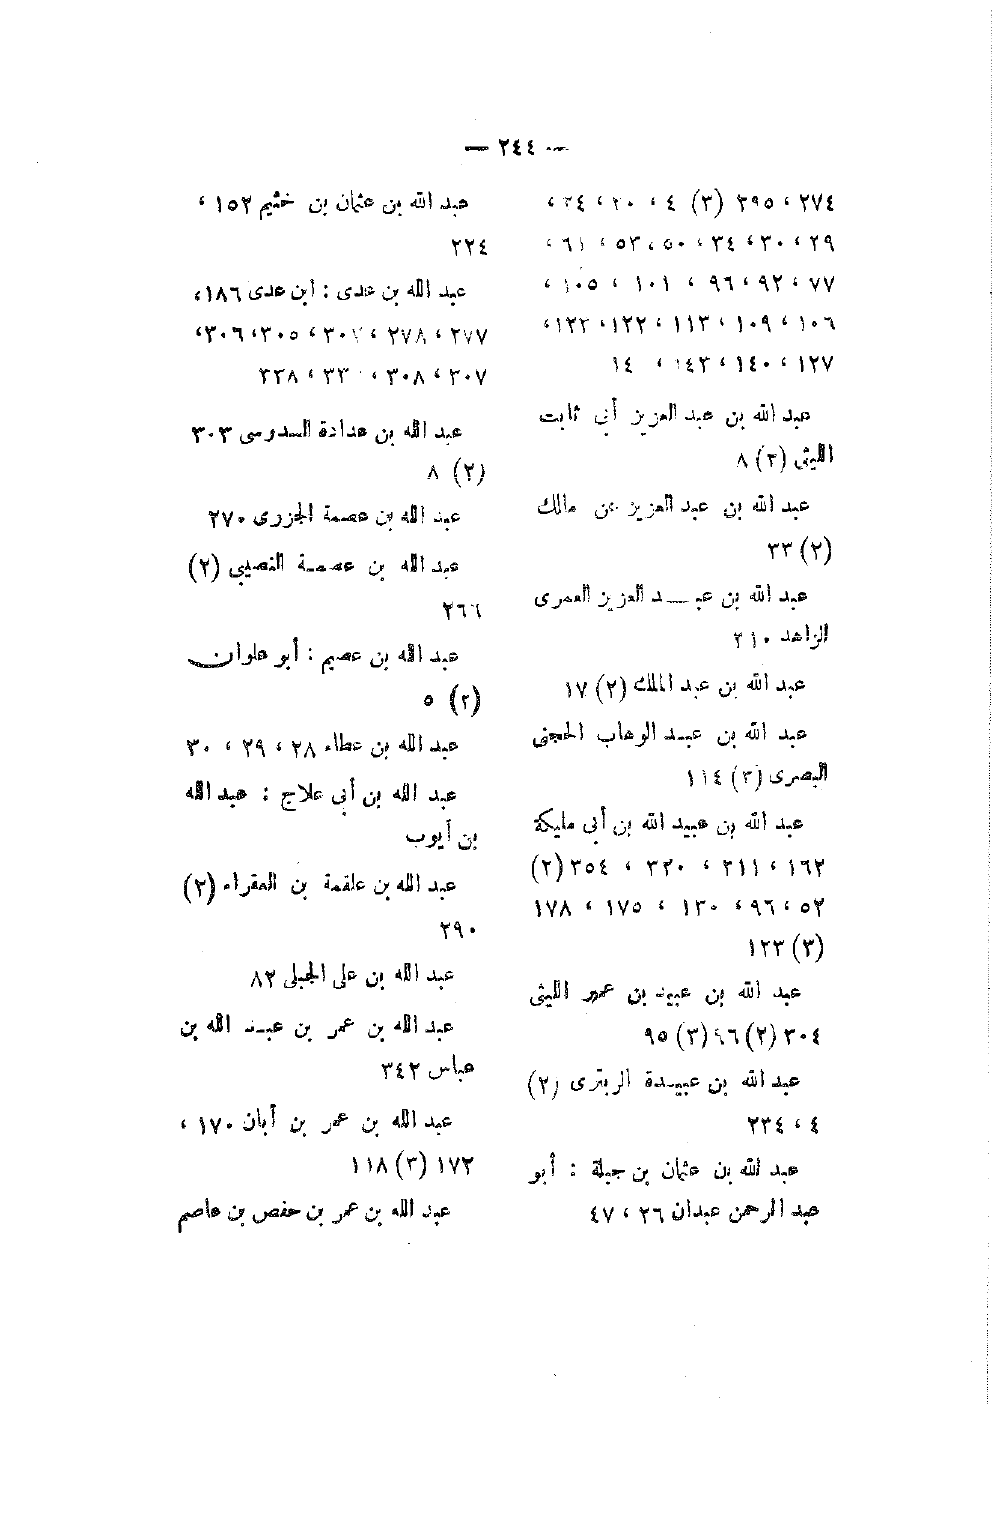 — ٢٤٤ —
٢٧٤ ، ٢٩٥ (٣) ٤ ، ٢٠ ، ٢٤ ،
٢٩ ، ٣٠ ، ٣٤ ، ٥٠ ، ٥٣ ، ٦١ ،
٧٧ ، ٩٢ ، ٩٦ ، ١٠١ ، ١٠٥ ،
١٠٦ ، ١٠٩ ، ١١٣ ، ١٢٢ ، ١٢٣ ،
١٢٧ ، ١٤٠ ، ١٤٣ ،
عبد الله بن عبد العزيز أبي ثابت
الليثى (٢) ٨
عبد الله بن عبد العزيز عن مالك
(٢) ٣٣
عبد الله بن عبـــد العزيز العمرى
الزاهد ٢١٠
عبد الله بن عبد الملك (٢) ١٧
عبد الله بن عبد الوهاب الحجبى
البصرى (٣) ١١٤
عبد الله بن عبيد الله بن أبي مليكة
١٦٢ ، ٢١١ ، ٣٢٠ ، ٣٥٤ (٢)
٥٢ ، ٩٦ ، ١٣٠ ، ١٧٥ ، ١٧٨
(٣) ١٢٣
عبد الله بن عبيد بن عمير الليثى
٣٠٤ (٢) ٩٦ (٣) ٩٥
عبد الله بن عبيـدة الربذى (٢)
٤ ، ٢٣٤
عبد الله بن عثمان بن جبلة : أبو
عبد الرحمن عبدان ٢٦ ، ٤٧
عبد الله بن عثمان بن خثيم ١٥٢ ،
٢٢٤
عبد الله بن عدى : ابن عدى ١٨٦ ،
٢٧٧ ، ٢٧٨ ، ٣٠٢ ، ٣٠٥ ، ٣٠٦ ،
٣٠٧ ، ٣٠٨ ، ، ٣٣٨
عبد الله بن عرادة السدوسى ٣٠٣
(٢) ٨
عبد الله بن عصمة الجزرى ٢٧٠
عبد الله بن عصمـة النصيبى (٢)
٢٦٦
عبد الله بن عصيم : أبو علوان
(٢) ٥
عبد الله بن عطاء ٢٨ ، ٢٩ ، ٣٠
عبد الله بن أبي علاج : عبد الله
بن أيوب
عبد الله بن علقمة بن الفقراء (٢)
٢٩٠
عبد الله بن على الجبلى ٨٢
عبد الله بن عمر بن عبـد الله بن
عباس ٣٤٢
عبد الله بن عمر بن أبان ١٧٠ ،
١٧٢ (٣) ١١٨
عبد الله بن عمر بن حفص بن عاصم